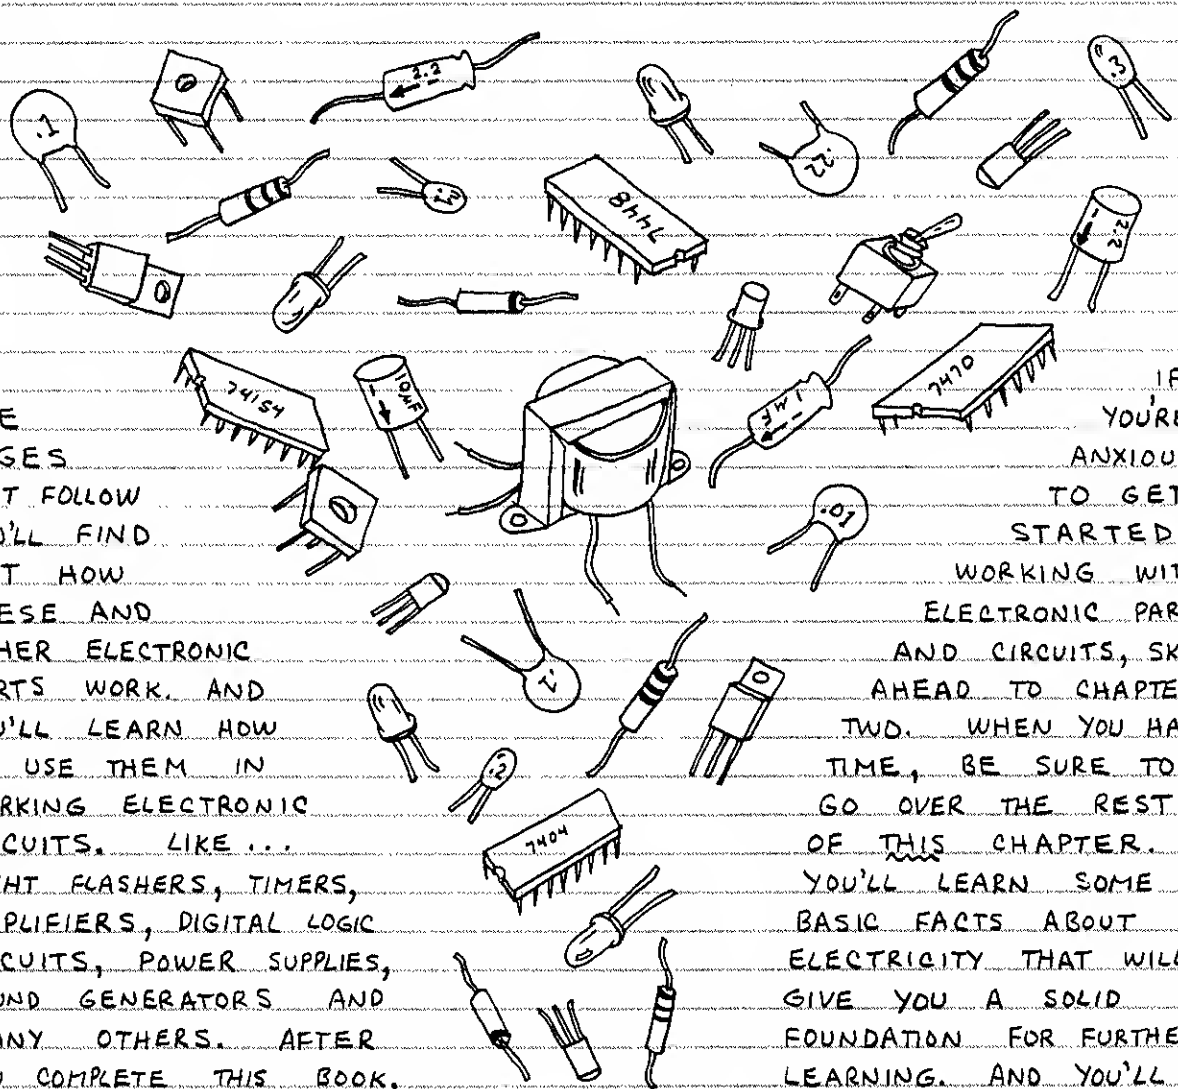 2.2
.3
.1
.22
7448
2.2
74154
10µF
1 MF
7470
.01
.1
.2
7404
E
GES
T FOLLOW
U'LL FIND
T HOW
ESE AND
HER ELECTRONIC
RTS WORK. AND
U'LL LEARN HOW
USE THEM IN
RKING ELECTRONIC
CUITS. LIKE ...
HT FLASHERS, TIMERS,
PLIFIERS, DIGITAL LOGIC
CUITS, POWER SUPPLIES,
UND GENERATORS AND
NY OTHERS. AFTER
U COMPLETE THIS BOOK.
IF
YOU'RE
ANXIOU
TO GET
STARTED
WORKING WIT
ELECTRONIC PAR
AND CIRCUITS, SK
AHEAD TO CHAPTE
TWO. WHEN YOU HA
TIME, BE SURE TO
GO OVER THE REST
OF THIS CHAPTER.
YOU'LL LEARN SOME
BASIC FACTS ABOUT
ELECTRICITY THAT WILL
GIVE YOU A SOLID
FOUNDATION FOR FURTHE
LEARNING. AND YOU'LL